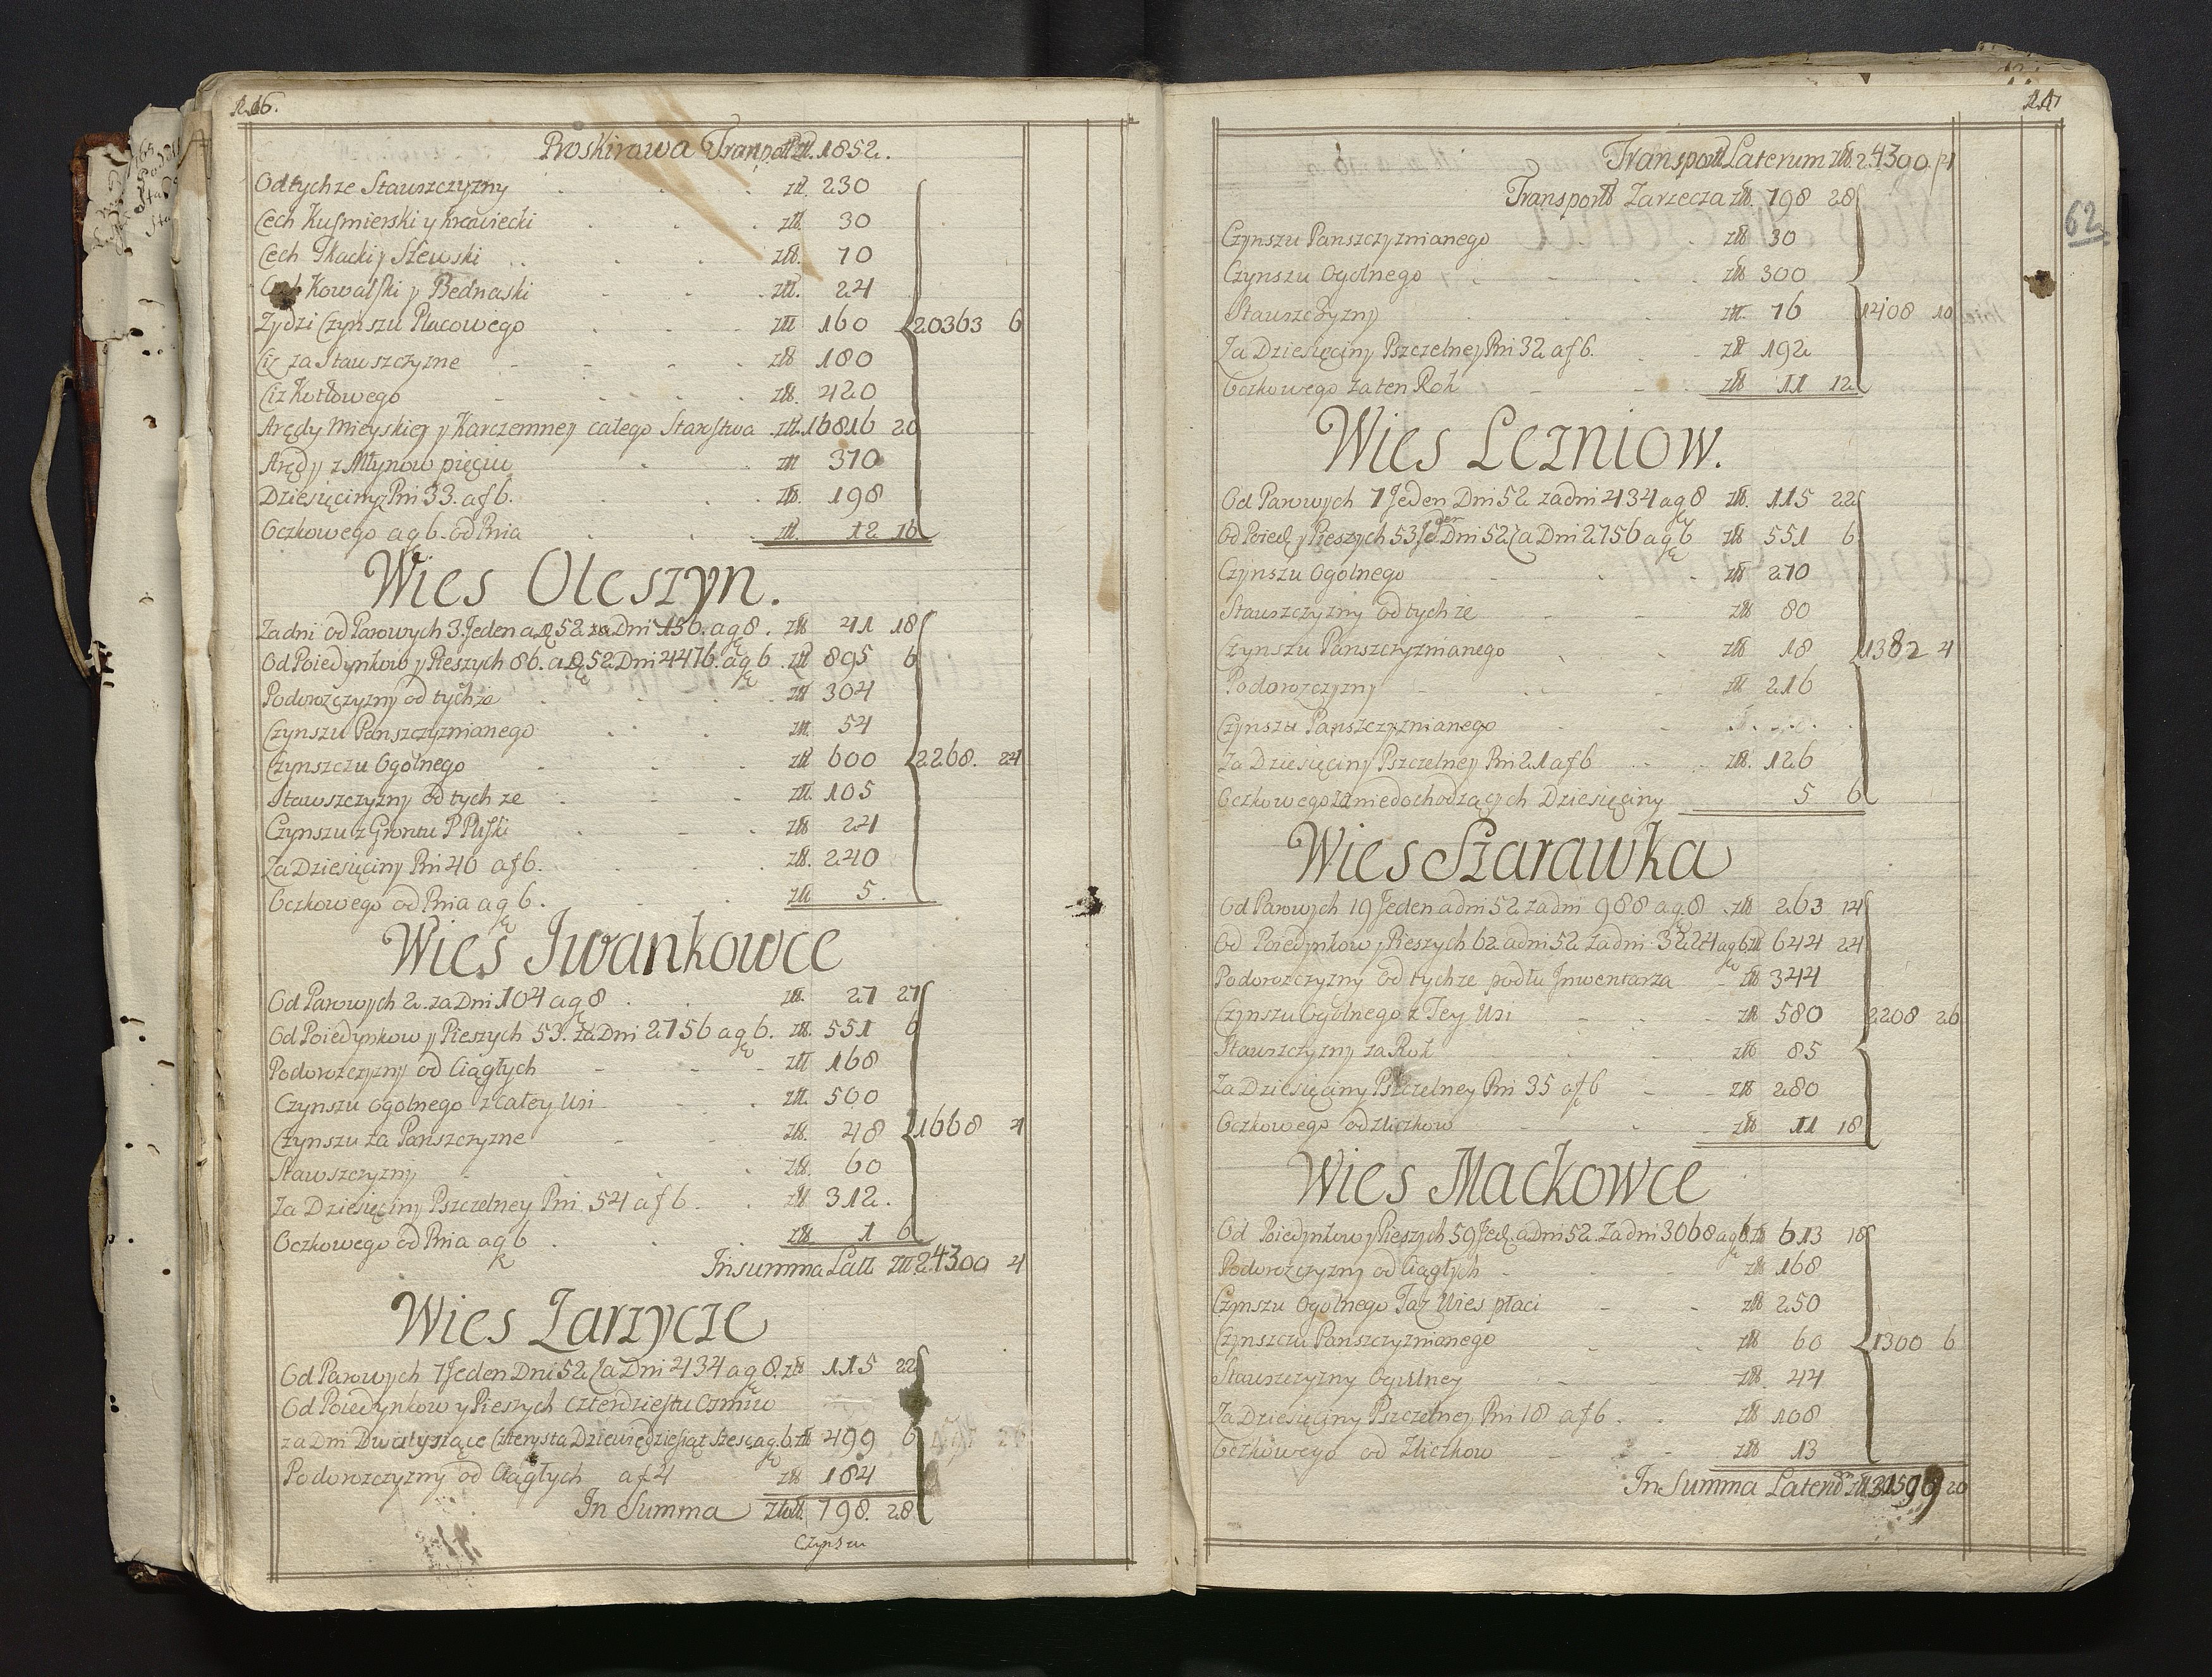 116.
Proskirowa Transport Zł. 1852.
Od tychże Stawszczyzny zł. 230
Cech Kuśmierski y krawiecki zł. 30
Cech Tkacki y Szewski zł. 70
Kowalski y Bednaski zł. 24
Zydzi Czynszu Placowego zł 160 20363 6
Ciż za Stawszczyzne zł 180
Ciż Kotłowego zł. 420
Arędy Mieyskiey y Karczemney całego Starostwa zł. 16816 20
Arędy z Młynow pięciu zł 370
Dziesięciny Pni 33. a f 6. zł. 198
Oczkowego a g 6. od Pnia zł. 12 16
Wies Oleszyn.
Za dni od Parowych 3. Jeden a D 52 za Dni 156. a g 8. zł 41 18
Od Poiedynkow y Pieszych 86. a D 52 Dni 4476. a g 6. zł 895 6
Podorożczyzny od tychże zł 304
Czynszu Panszczyznianego zł. 54
Czynszczu Ogolnego zł 600 2268. 24
Stawszczyzny od tych ze zł. 105
Czynszu z Grontu P Pliski zł 24
Za Dziesięciny Pni 40 a f 6. zł. 240
Oczkowego od Pnia a g 6. zł 5.
Wies Iwankowce
Od Parowych 2. za Dni 104 a g 8 zł. 27 27
Od Poiedynkow y Pieszych 53. za Dni 2756 a g 6. zł. 551 6
Podorożczyzny od Ciągłych zł 168
Czynszu ogolnego z całey Wsi zł. 500
Czynszu za Panszczyzne zł. 48 1668 4
Stawszczyzny zł. 60
Za Dziesięciny Pszczelney Pni 54 a f 6. zł 312.
Oczkowego od Pnia a g 6 zł. 1 6
In summa Latt Zł 24300 4
Wies Zarzycze
Od Parowych 7 Jeden Dni 52 Za Dni 434 a g 8. zł 115 22
Od Poiedynkow y Pieszych czterdziestu Osmiu
za Dni Dwatysiące Czterysta Dziewiędziesiąt Szesc a g. 6 zł 499 6
Podorozczyzny od Ciągłych a f 4 zł 184
In Summa Złot. 798. 28
Czynszu
117
Transportt Laterum zł. 24300. 4
Transportt Zarzecza zł. 798 28
62
Czynszu Panszczyznianego zł 30
Czynszu Ogolnego zł 300
Stawszczyzny zł. 76 1408 10
Za Dziesięciny Pszczelney Pni 32 a f 6. zł 192
Oczkowego za ten Rok zł 11 12
Wies Lezniow.
Od Parowych 7 Jeden Dni 52 za dni 434 a g 8 zł. 115 22
Od Poied y Pieszych 53 Jeden Dni 52 Za Dni 2756 a g 6 zł 551 6
Czynszu Ogolnego zł 270
Stawszczyzny od tych że zł 80
Czynszu Panszczyznianego zł 18 1382 4
Podorozczyzny zł 216
Czynszu Panszczyznianego
Za Dziesięciny Pszczelney Pni 21 a f 6 zł. 126
Oczkowego za niedochodzących Dziesięciny 5 6
Wies Szarawka
Od Parowych 19 Jeden a dni 52 za dni 988 a g. 8 zł 263 14
Od Poiedynkow y Pieszych 62 a dni 52 za dni 3224 a g 6 zł 644 24
Podorozczyzny od tychze podłu Inwentarza zł 344
Czynszu Ogolnego z Tey Wsi zł 580 2208 26
Stawszczyzny za Rok zł 85
Za Dziesięciny Pszczelney Pni 35 a f 6 zł 280
Oczkowego od Zliczkow zł 11 18
Wies Mackowce
Od Poiedynkow y Pieszych 59 Jed. a dni 52 Za dni 3068 a g 6. zł 613 18
Podorozczyzny od Ciągłych zł 168
Czynszu Ogolnego Taz Wies płaci zł 250
Czynszczu Panszczyznianego zł 60 1300 6
Stawszczyzny Ogulney zł. 44
Za Dziesięciny Pszczelney Pni 18 a f 6. zł 108
Oczkowego od Zliczkow zł 13
In Summa Laterum zł 31599 20